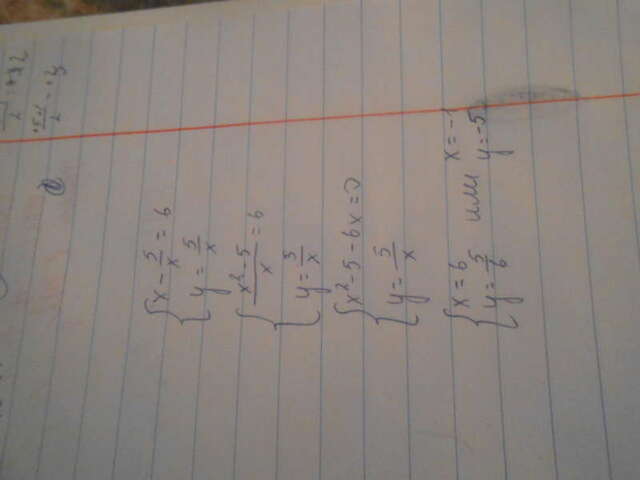 x - 5/x = 6
y = 5/x
x² - 5/x = 6
y = 5/x
x² - 5 - 6x = 0
y = 5/x
x = 6 или x = -1
y = 5/6 y = -5